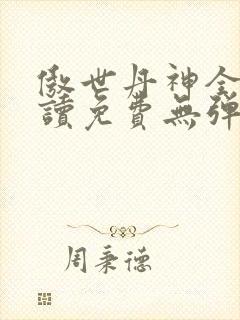 傲世丹神全
讀免費無彈
周秉德